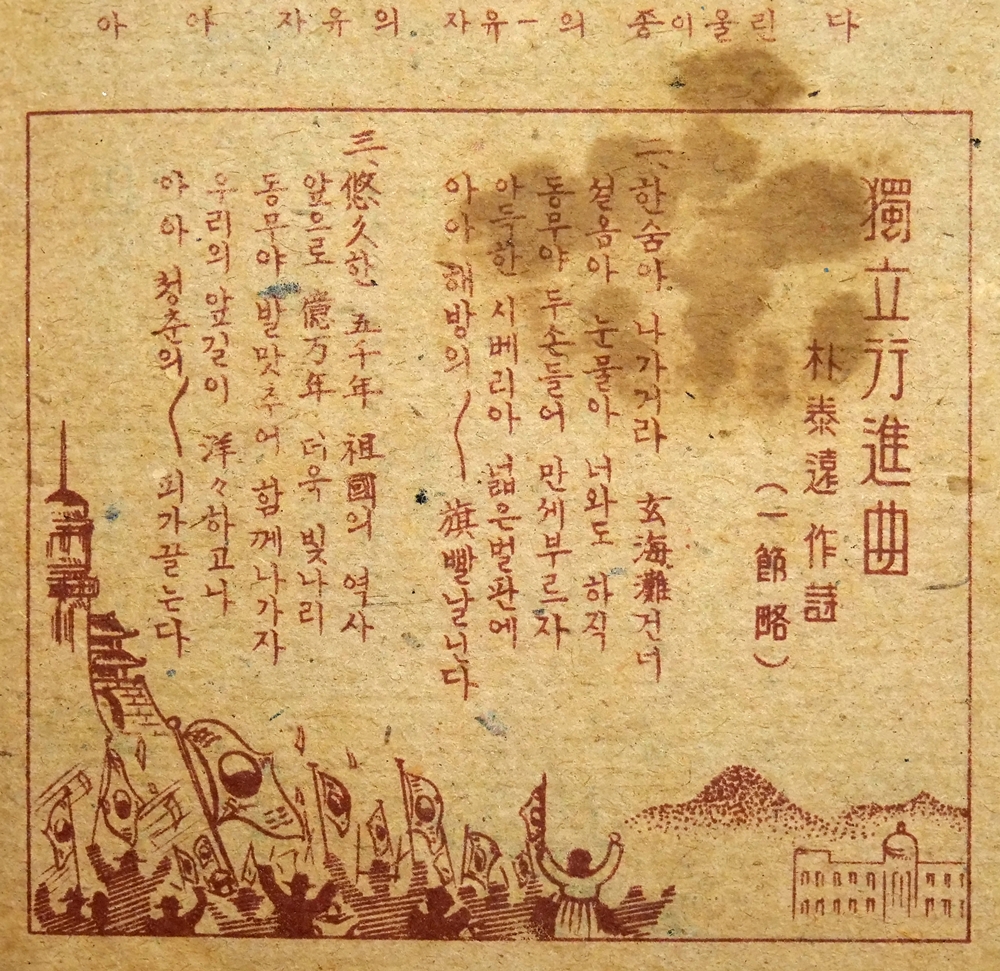 아 아 자유의 자유ー의 종이울린 다
獨立行進曲
朴泰遠 作謎
(一節略)
二、한숨아 나가거라 玄海灘건너
설음아 눈물아 너와도 하직
동무야 두손들어 만세부르자
아득한 시베리아 넓은벌판에
아아 해방의 〜 旗빨날닌다
三、悠久한 五千年 祖國의 역사
앞으로 億万年 더욱 빛나리
동무야 발맞추어 함께나가자
우리의 앞길이 洋々하고나
아아 청춘의 〜 피가끌는다